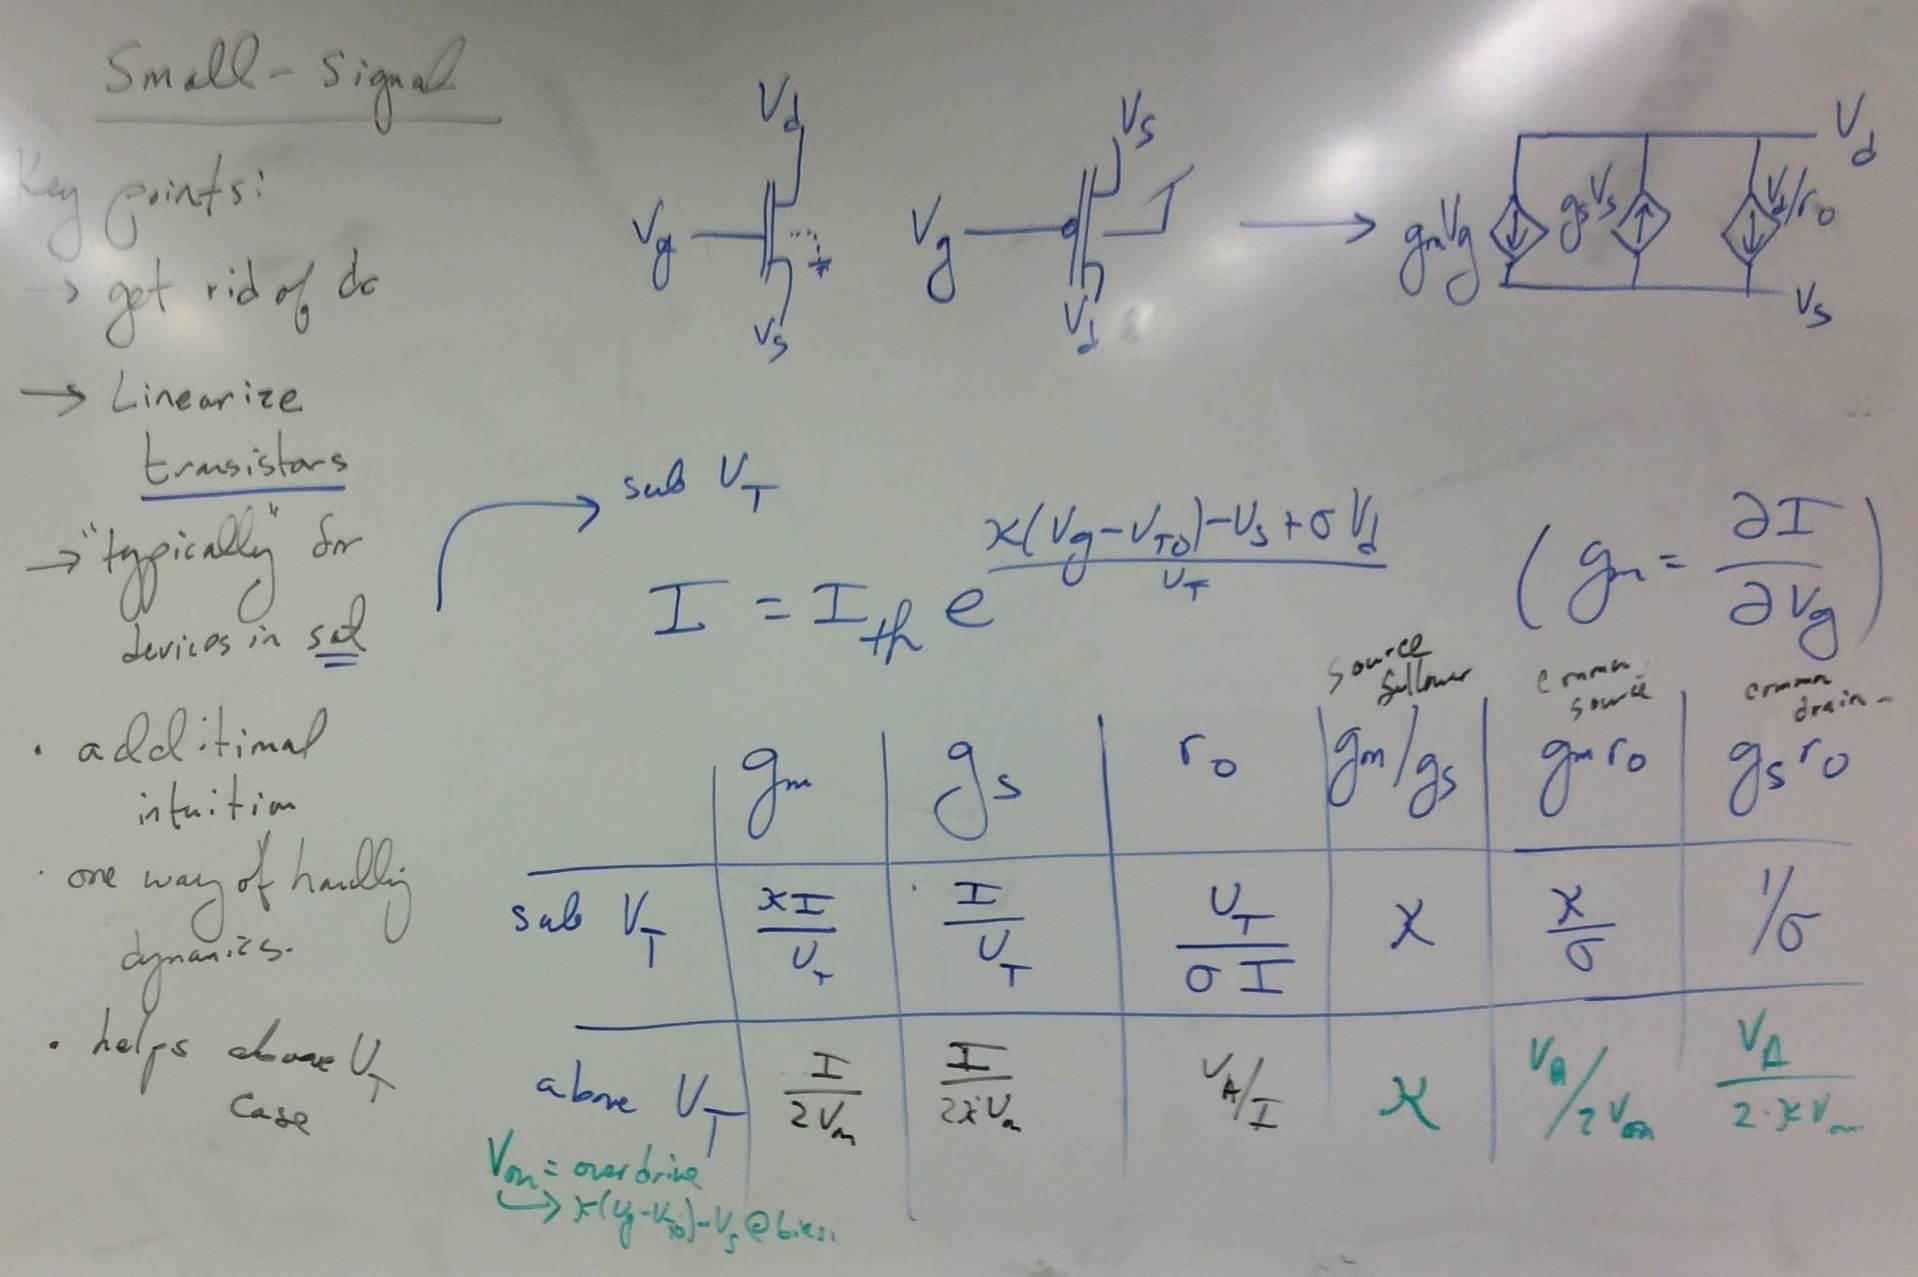 Small-Signal
Key points:
→ get rid of dc
→ Linearize
transistors
→ "typically" for
devices in sat
· additional
intuition
· one way of handling
dynamics.
· helps above U_T
case
V_d
V_g
V_s
V_s
V_g
V_d
→
V_d
g_m V_g
g_s V_s
V_d/r_o
V_s
sub V_T
I = I_th e^{(κ(V_g-V_T0)-V_s+σV_d)/U_T}
(g_m = ∂I/∂V_g)
source follower
common source
common drain
g_m g_s r_o g_m/g_s g_m r_o g_s r_o
sub V_T κI/U_T I/U_T U_T/σI κ κ/σ 1/σ
above V_T I/2V_on I/2κV_on V_A/I κ V_A/2V_on V_A/2·κV_on
V_on = overdrive
→ κ(V_g-V_T0)-V_s @ bias.